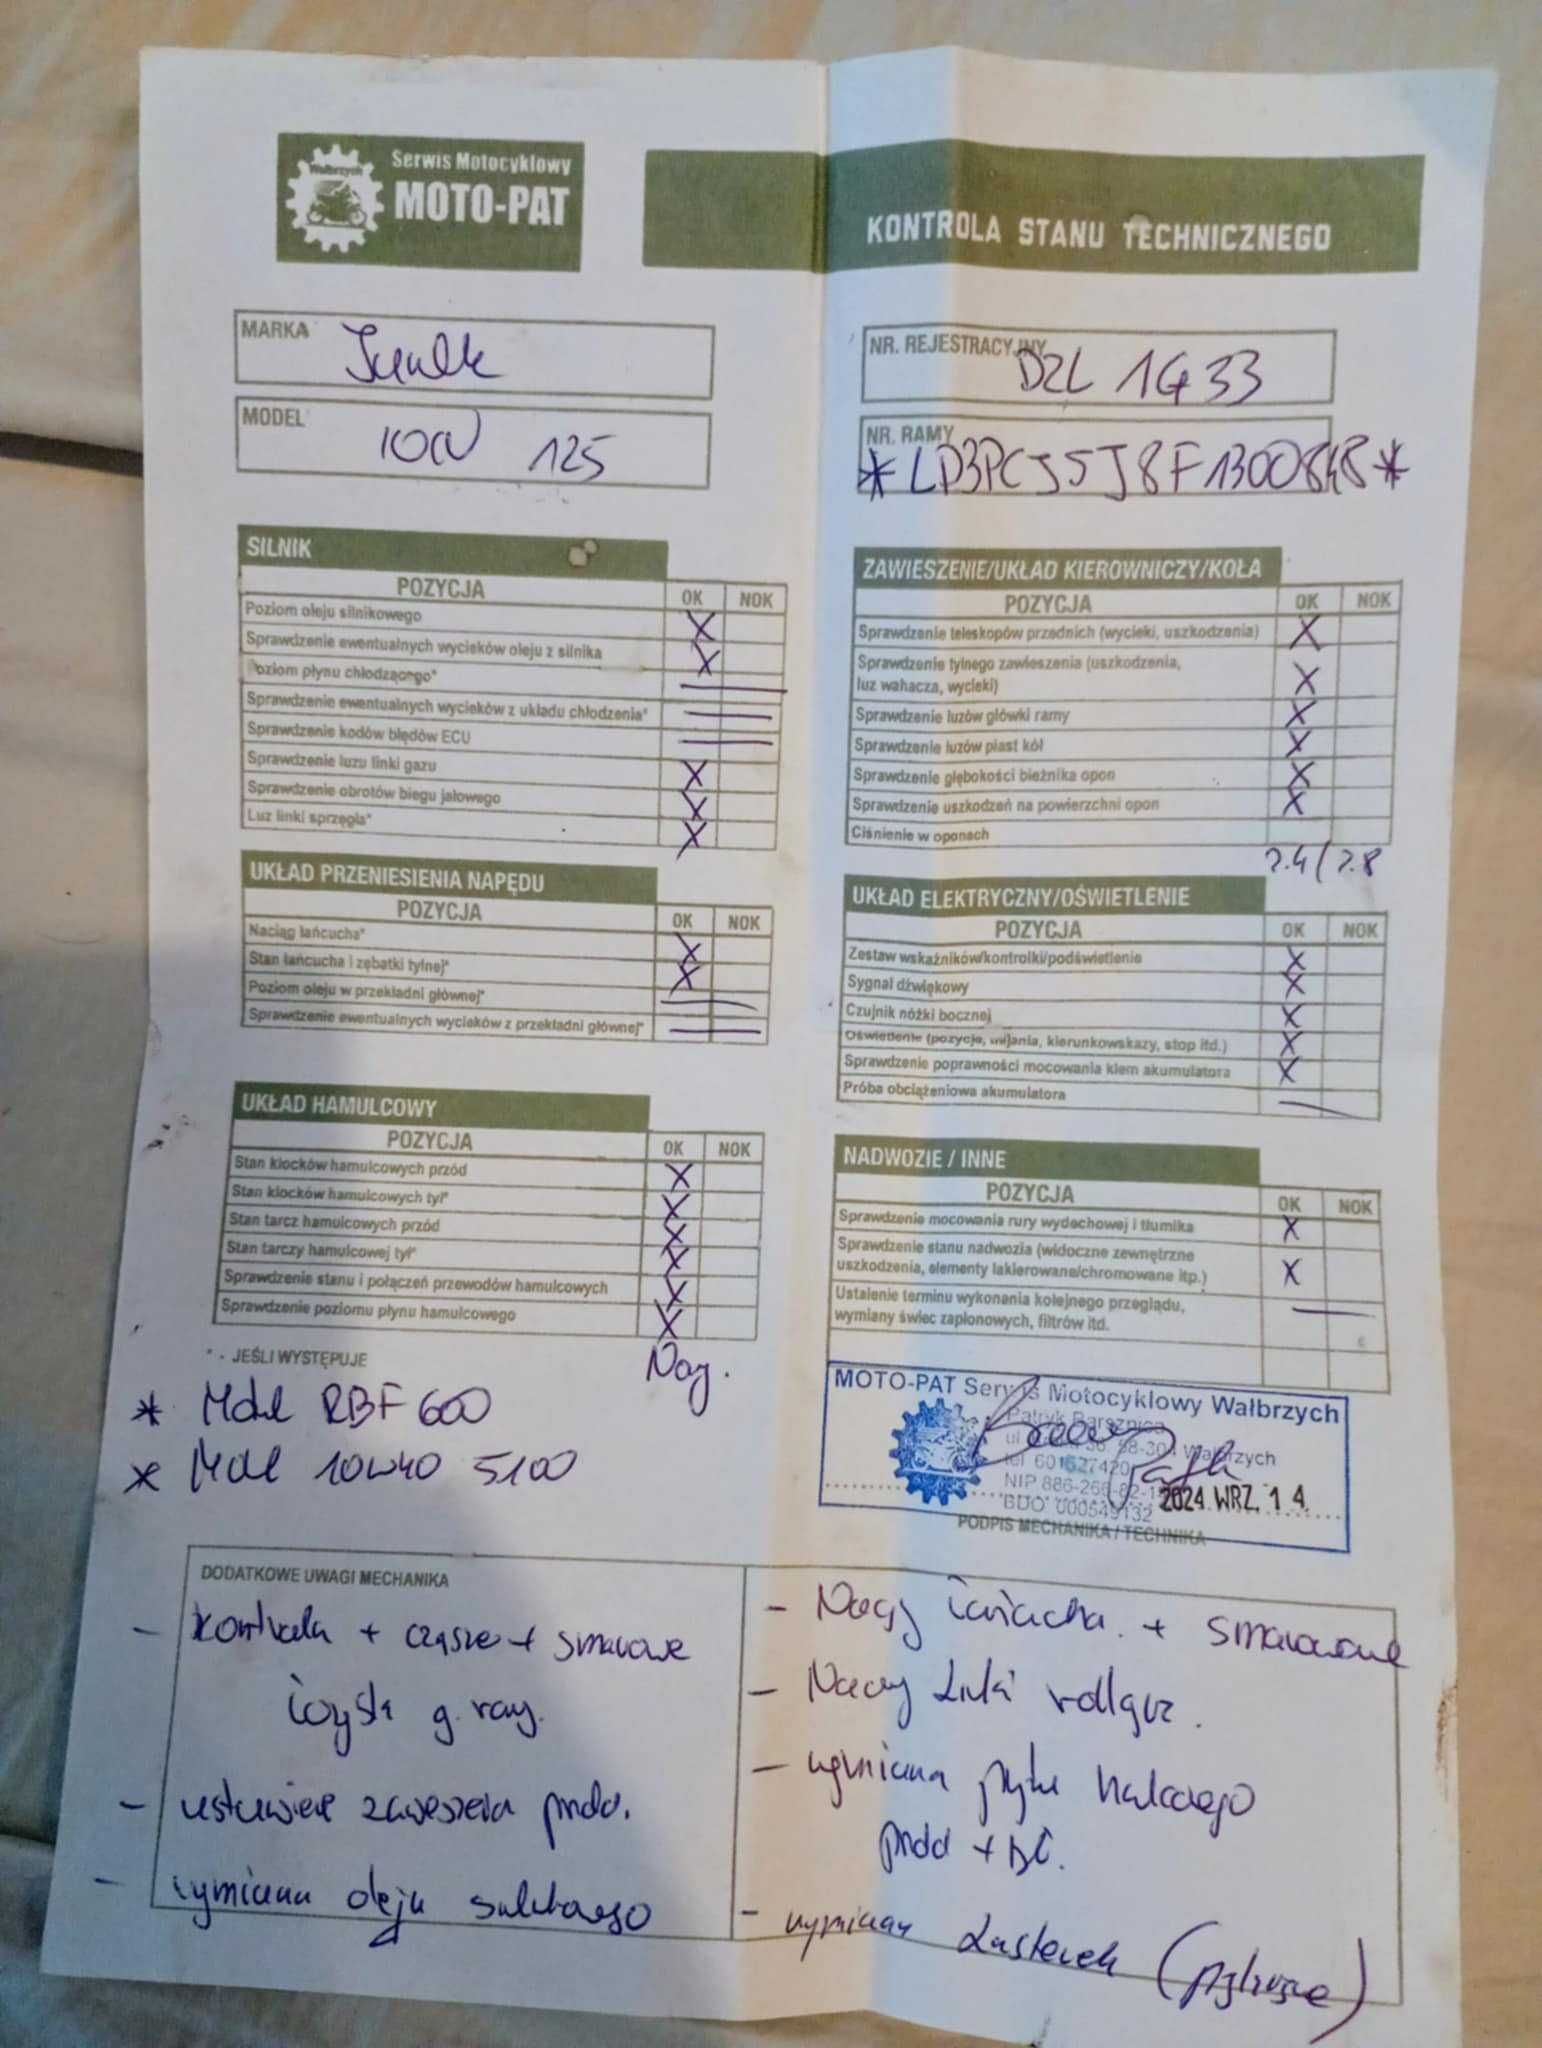 Wałbrzych
Serwis Motocyklowy
MOTO-PAT
KONTROLA STANU TECHNICZNEGO
MARKA Junak
NR. REJESTRACYJNY DZL 1G33
MODEL 125
NR. RAMY
SILNIK
POZYCJA OK NOK
Poziom oleju silnikowego X
Sprawdzenie ewentualnych wycieków oleju z silnika X
Poziom płynu chłodzącego*
Sprawdzenie ewentualnych wycieków z układu chłodzenia*
Sprawdzenie kodów błędów ECU
Sprawdzenie luzu linki gazu X
Sprawdzenie obrotów biegu jałowego X
Luz linki sprzęgła* X
UKŁAD PRZENIESIENIA NAPĘDU
POZYCJA OK NOK
Naciąg łańcucha* X
Stan łańcucha i zębatki tylnej* X
Poziom oleju w przekładni głównej*
Sprawdzenie ewentualnych wycieków z przekładni głównej*
UKŁAD HAMULCOWY
POZYCJA OK NOK
Stan klocków hamulcowych przód X
Stan klocków hamulcowych tył* X
Stan tarcz hamulcowych przód X
Stan tarczy hamulcowej tył* X
Sprawdzenie stanu i połączeń przewodów hamulcowych X
Sprawdzenie poziomu płynu hamulcowego X
* - JEŚLI WYSTĘPUJE
* Motul RBF 600
* Motul 10W40 5100
ZAWIESZENIE/UKŁAD KIEROWNICZY/KOŁA
POZYCJA OK NOK
Sprawdzenie teleskopów przednich (wycieki, uszkodzenia) X
Sprawdzenie tylnego zawieszenia (uszkodzenia,
luz wahacza, wycieki) X
Sprawdzenie luzów główki ramy X
Sprawdzenie luzów piast kół X
Sprawdzenie głębokości bieżnika opon X
Sprawdzenie uszkodzeń na powierzchni opon X
Ciśnienie w oponach
2.4 / 2.8
UKŁAD ELEKTRYCZNY/OŚWIETLENIE
POZYCJA OK NOK
Zestaw wskaźników/kontrolki/podświetlenie X
Sygnał dźwiękowy X
Czujnik nóżki bocznej X
Oświetlenie (pozycja, mijania, kierunkowskazy, stop itd.) X
Sprawdzenie poprawności mocowania klem akumulatora X
Próba obciążeniowa akumulatora
NADWOZIE / INNE
POZYCJA OK NOK
Sprawdzenie mocowania rury wydechowej i tłumika X
Sprawdzenie stanu nadwozia (widoczne zewnętrzne
uszkodzenia, elementy lakierowane/chromowane itp.) X
Ustalenie terminu wykonania kolejnego przeglądu,
wymiany świec zapłonowych, filtrów itd.
MOTO-PAT Serwis Motocyklowy Wałbrzych
Patryk
ul 58-30 Wałbrzych
tel 601527420
NIP 886-266-82-1
BDO 000549132
2024 WRZ. 14
PODPIS MECHANIKA / TECHNIKA
DODATKOWE UWAGI MECHANIKA
- kontrola + czyszcz + smarowanie
łożysk g. ramy.
- ustawienie zawieszenia przód.
- wymiana oleju silnikowego
- Naciąg łańcucha. + smarowanie
- linki
- wymiana płynu hamulcowego
przód + tył.
- wymiana